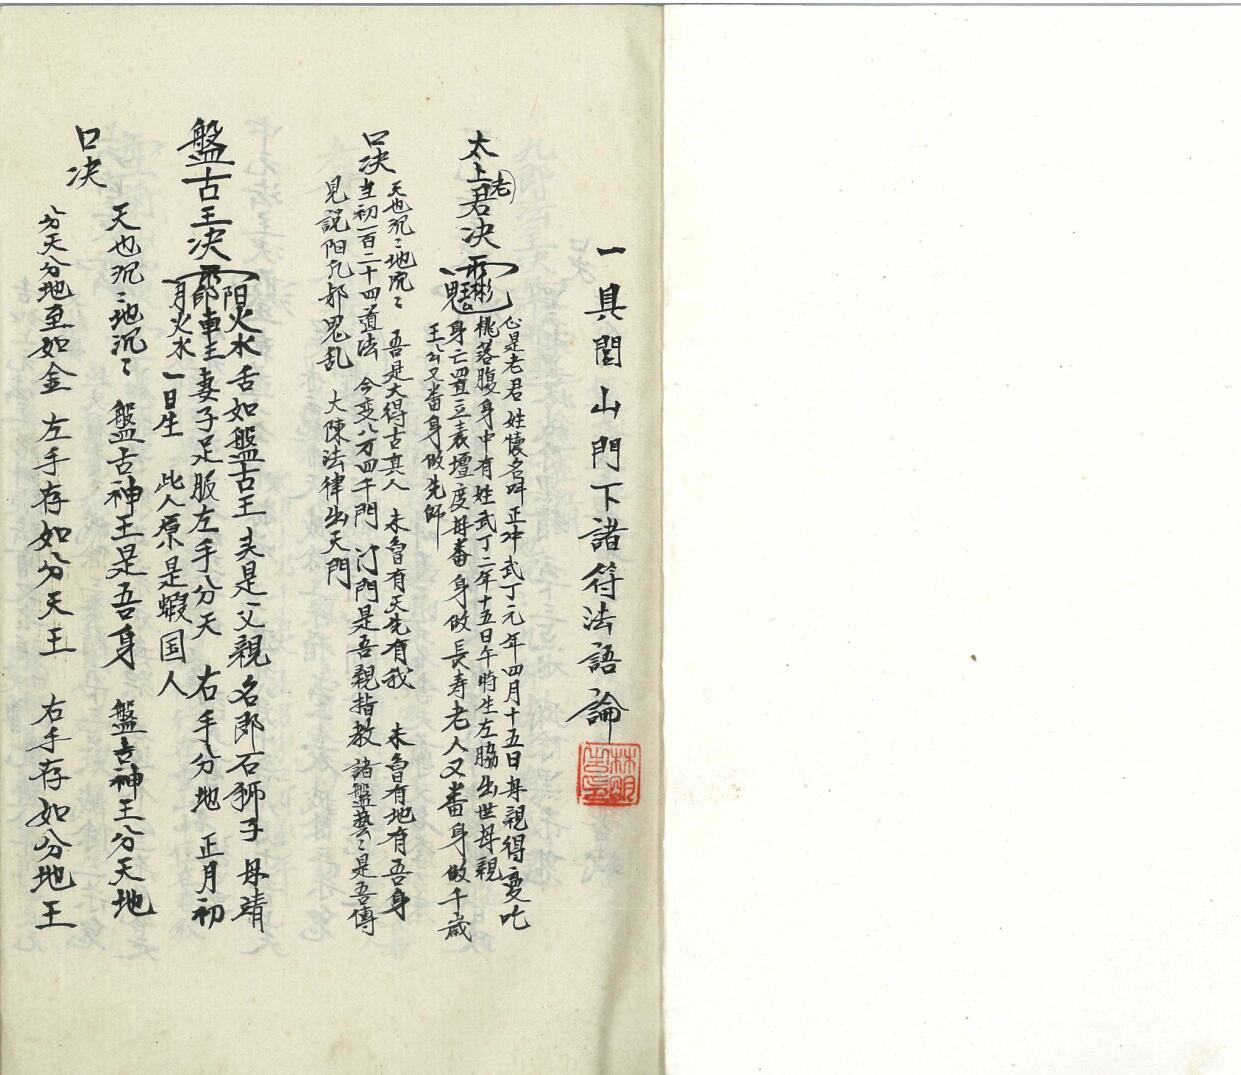 一具閭山門下諸符法語論
太上老君决
心是老君姓懐名呌正冲武丁元年四月十五日母親得変吃
桃落腹身中有姓武丁二年十五日午時生左脇出世母親
身亡四直立表壇度母畨身做長寿老人又畨身做千歲
王公又畨身做先師
口决
天也沉〻地沉〻 吾是大得古真人 未曾有天先有我 未曾有地有吾身
当初一百二十四道法 今变八万四千門 门門是吾親指教 諸盤藝〻是吾傳
見説阳凢邪鬼乱 大陳法律出天門
盤古王决
阳火水舌如盤古王 夫是父親名郎石獅子 母靖
車主妻子足服左手分天 右手分地 正月初
月火水一日生 此人原是蝦国人
口决
天也沉〻地沉〻 盤古神王是吾身 盤古神王分天地
分天分地至如金 左手存如分天王 右手存如分地王